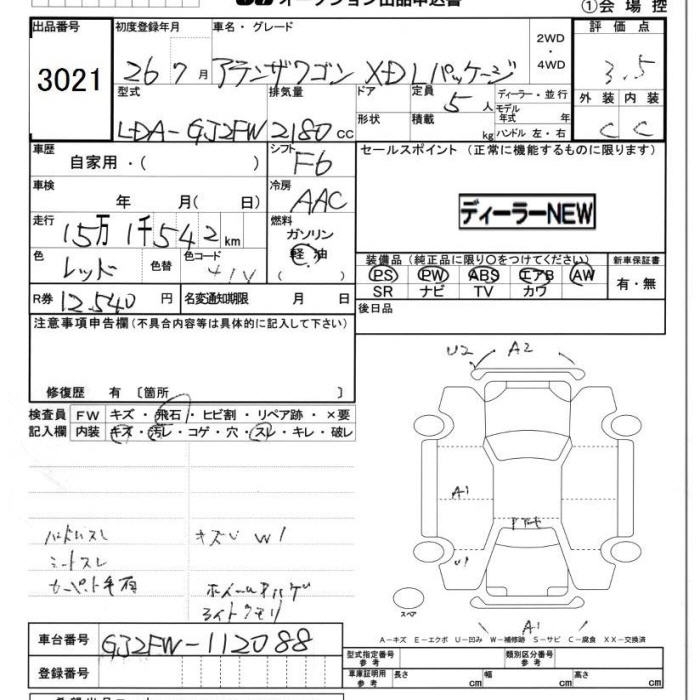 ①会場控
出品番号
3021
初度登録年月
26 7月
車名・グレード
アテンザワゴン XD Lパッケージ
2WD
・
4WD
評価点
3.5
型式
LDA-GJ2FW
排気量
2180 cc
ドア
形状
定員
5人
積載
kg
ディーラー・並行
モデル
年式 年
ハンドル 左・右
外装
内装
C
C
車歴
自家用・( )
シフト
F6
セールスポイント (正常に機能するものに限ります)
車検
年 月( 日)
冷房
AAC
ディーラーNEW
走行
15万1千542km
燃料
ガソリン
軽油
( )
色
レッド
色替
色コード
41V
装備品(純正品に限り○をつけてください)
PS PW ABS エアB AW
SR ナビ TV カワ
新車保証書
有・無
R券
12,540円
名変通知期限 月 日
後日品
注意事項申告欄(不具合内容等は具体的に記入して下さい)
修復歴 有 〔箇所 〕
U2 A2
検査員
記入欄
FW キズ・飛石・ヒビ割・リペア跡・×要
内装 キズ・汚レ・コゲ・穴・スレ・キレ・破レ
A1
U1
ハンドルスレ
シートスレ
キズ W1
ホイールキズ
ライトクモリ
スペア
A1
A-キズ E-エクボ U-凹み W-補修跡 S-サビ C-腐食 XX-交換済
車台番号
GJ2FW-112088
登録番号
型式指定番号
参考
類別区分番号
参考
車庫証明用
参考
長さ cm
幅 cm
高さ cm